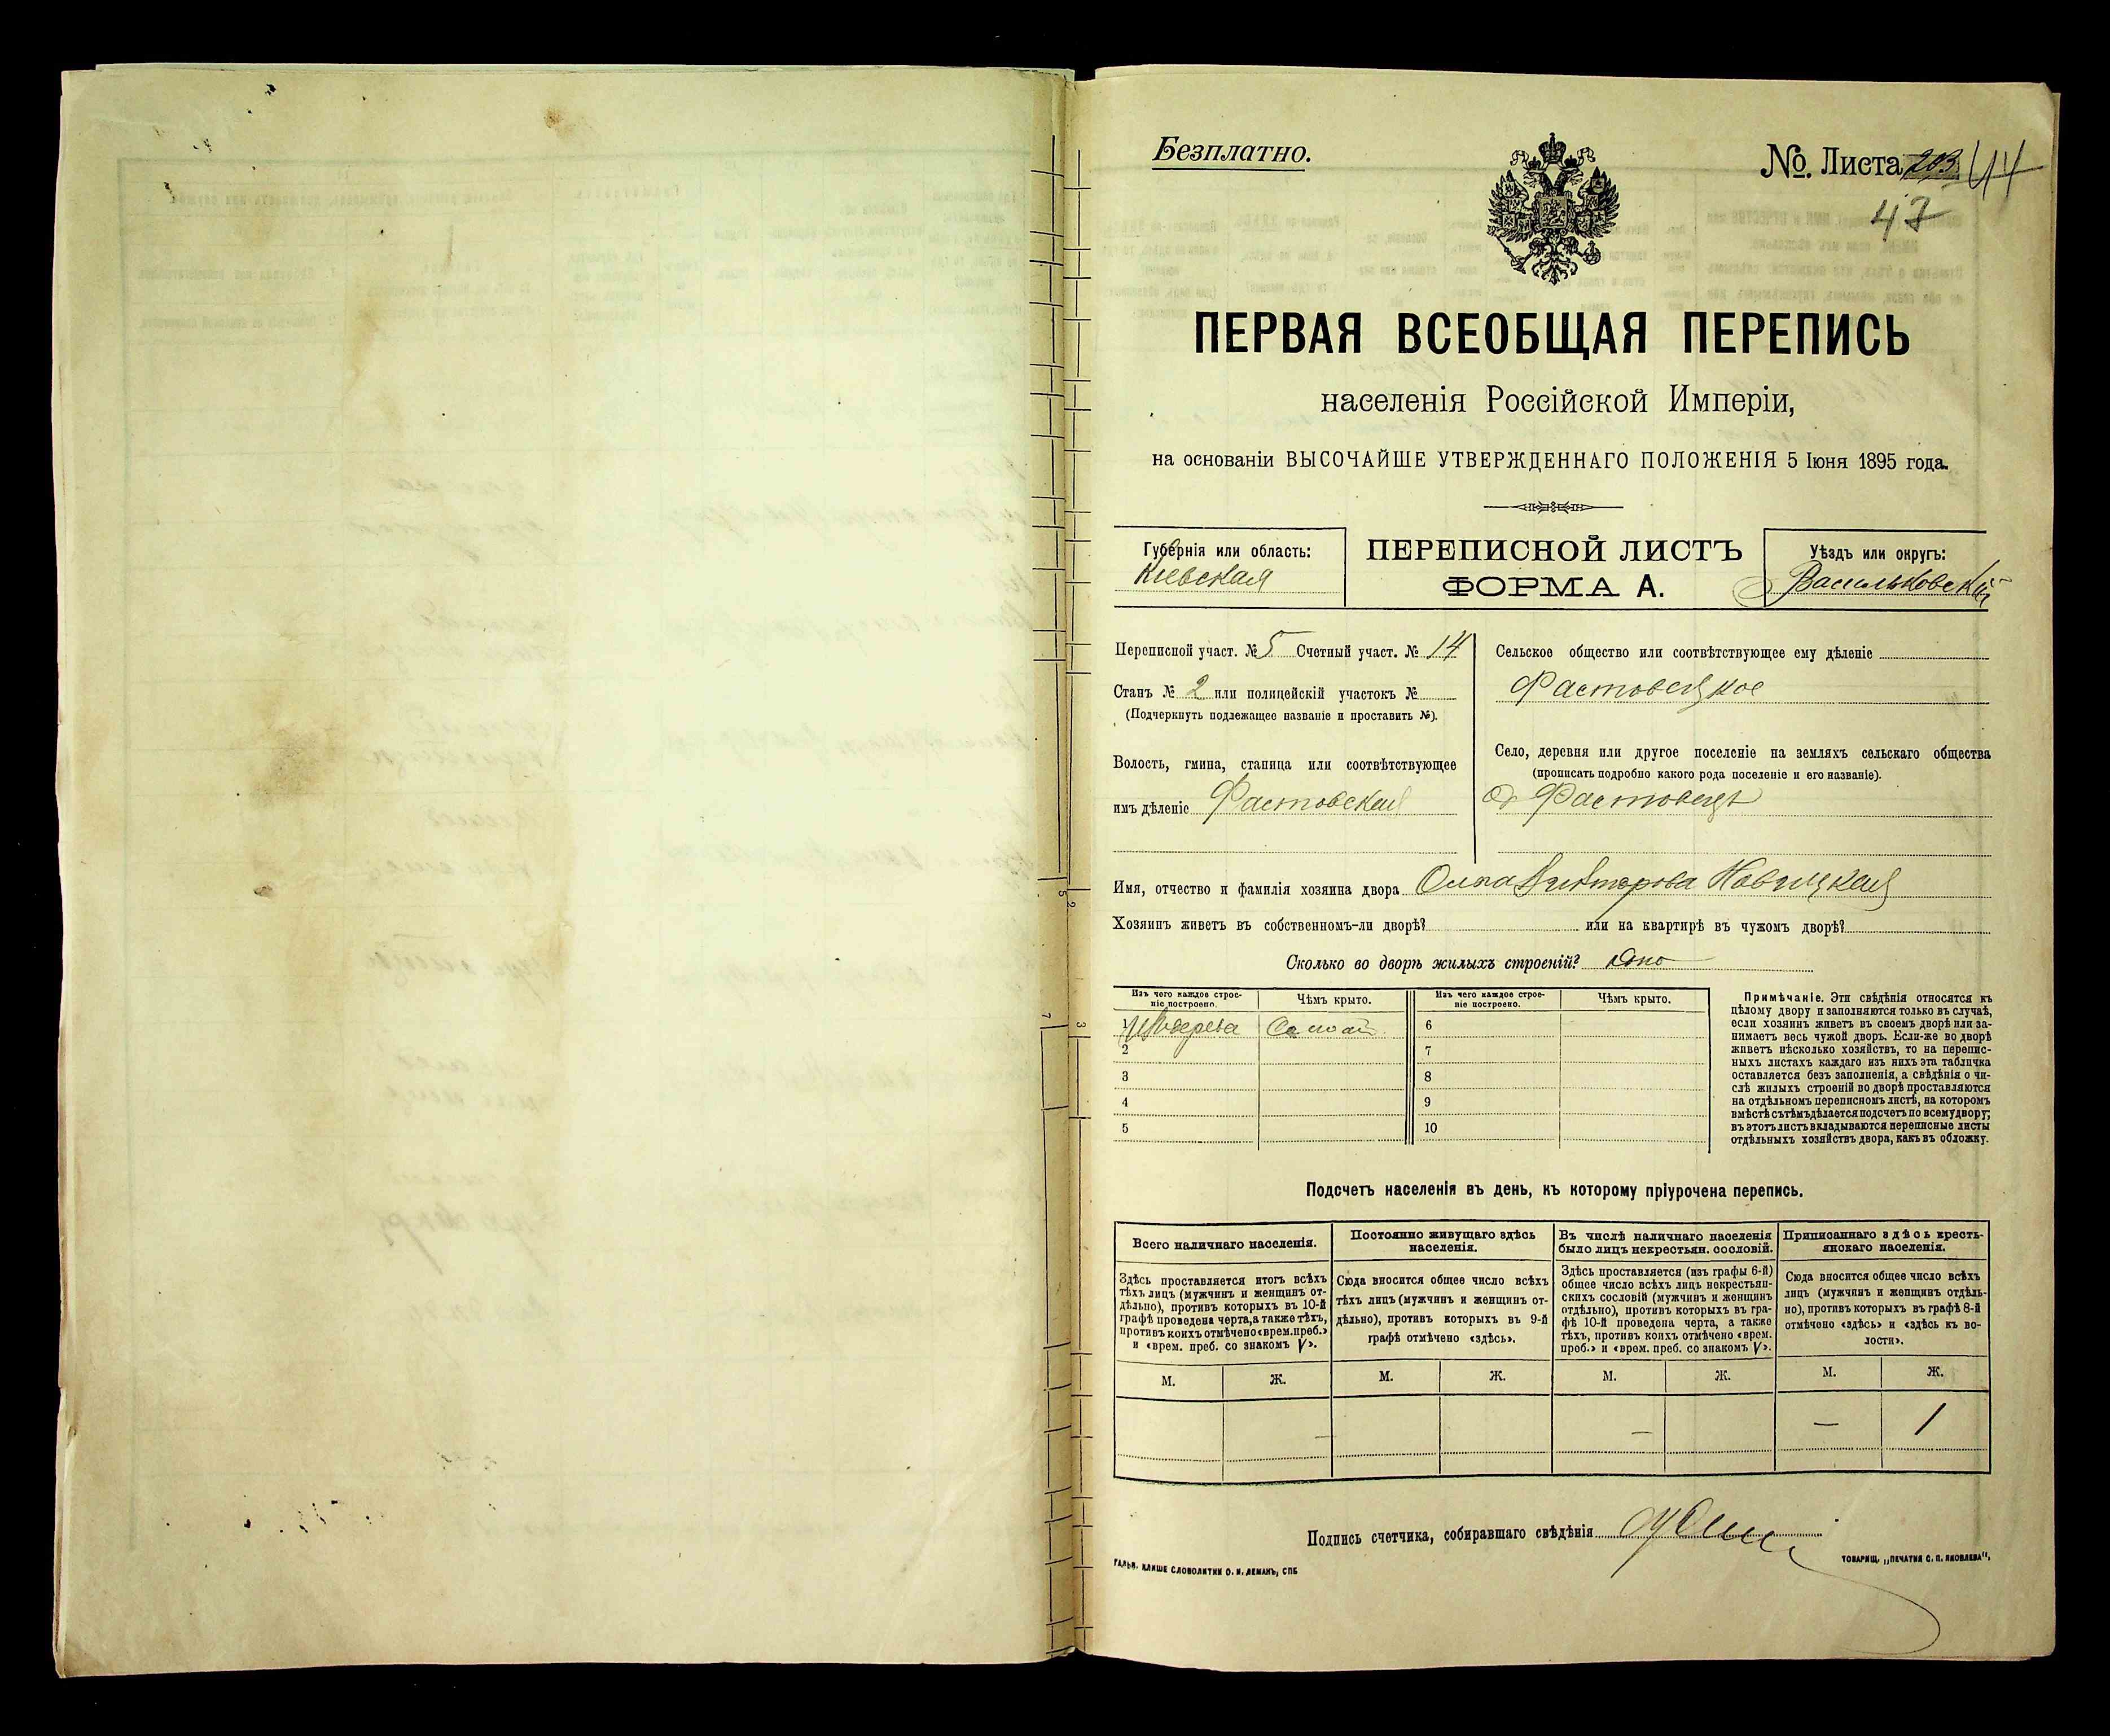 Безплатно.
№. Листа 203 44
43
ПЕРВАЯ ВСЕОБЩАЯ ПЕРЕПИСЬ
населенія Россійской Имперіи,
на основаніи ВЫСОЧАЙШЕ УТВЕРЖДЕННАГО ПОЛОЖЕНІЯ 5 Іюня 1895 года.
Губернія или область:
Кіевская
ПЕРЕПИСНОЙ ЛИСТЪ
ФОРМА А.
Уѣздъ или округъ:
Васильковскій
Переписной участ. № 5 Счетный участ. № 14
Станъ № 2 или полицейскій участокъ №
(Подчеркнуть подлежащее названіе и проставить №).
Волость, гмина, станица или соотвѣтствующее
имъ дѣленіе Фастовская
Сельское общество или соотвѣтствующее ему дѣленіе
Фастовецкое
Село, деревня или другое поселеніе на земляхъ сельскаго общества
(прописать подробно какого рода поселеніе и его названіе).
Фастовецъ
Имя, отчество и фамилія хозяина двора Новицкая
Хозяинъ живетъ въ собственномъ-ли дворѣ? или на квартирѣ въ чужомъ дворѣ?
Сколько во дворѣ жилыхъ строеній? Одно
Изъ чего каждое строе-
ніе построено.
Чѣмъ крыто.
Изъ чего каждое строе-
ніе построено.
Чѣмъ крыто.
1 Изъ дерева Соломой 6
2 7
3 8
4 9
5 10
Примѣчаніе. Эти свѣдѣнія относятся къ
цѣлому двору и заполняются только въ случаѣ,
если хозяинъ живетъ въ своемъ дворѣ или за-
нимаетъ весь чужой дворъ. Если-же во дворѣ
живетъ нѣсколько хозяйствъ, то на перепис-
ныхъ листахъ каждаго изъ нихъ эта табличка
оставляется безъ заполненія, а свѣдѣнія о чи-
слѣ жилыхъ строеній во дворѣ проставляются
на отдѣльномъ переписномъ листѣ, на которомъ
вмѣстѣ съ тѣмъ дѣлается подсчетъ по всему двору;
въ этотъ листъ вкладываются переписные листы
отдѣльныхъ хозяйствъ двора, какъ въ обложку.
Подсчетъ населенія въ день, къ которому пріурочена перепись.
Всего наличнаго населенія.
Здѣсь проставляется итогъ всѣхъ
тѣхъ лицъ (мужчинъ и женщинъ от-
дѣльно), противъ которыхъ въ 10-й
графѣ проведена черта, а также тѣхъ,
противъ коихъ отмѣчено «врем. преб.»
и «врем. преб. со знакомъ V».
Постоянно живущаго здѣсь
населенія.
Сюда вносится общее число всѣхъ
тѣхъ лицъ (мужчинъ и женщинъ от-
дѣльно), противъ которыхъ въ 9-й
графѣ отмѣчено «здѣсь».
Въ числѣ наличнаго населенія
было лицъ некрестьян. сословій.
Здѣсь проставляется (изъ графы 6-й)
общее число всѣхъ лицъ некрестьян-
скихъ сословій (мужчинъ и женщинъ
отдѣльно), противъ которыхъ въ гра-
фѣ 10-й проведена черта, а также
тѣхъ, противъ коихъ отмѣчено «врем.
преб.» и «врем. преб. со знакомъ V».
Приписаннаго здѣсь кресть-
янскаго населенія.
Сюда вносится общее число всѣхъ
лицъ (мужчинъ и женщинъ отдѣль-
но), противъ которыхъ въ графѣ 8-й
отмѣчено «здѣсь» и «здѣсь къ во-
лости».
М. Ж. М. Ж. М. Ж. М. Ж.
— — — 1
Подпись счетчика, собиравшаго свѣдѣнія
ГАЛЬВ. КЛИШЕ СЛОВОЛИТНИ О. И. ЛЕМАНЪ, СПБ
ТОВАРИЩ. „ПЕЧАТНЯ С. П. ЯКОВЛЕВА",